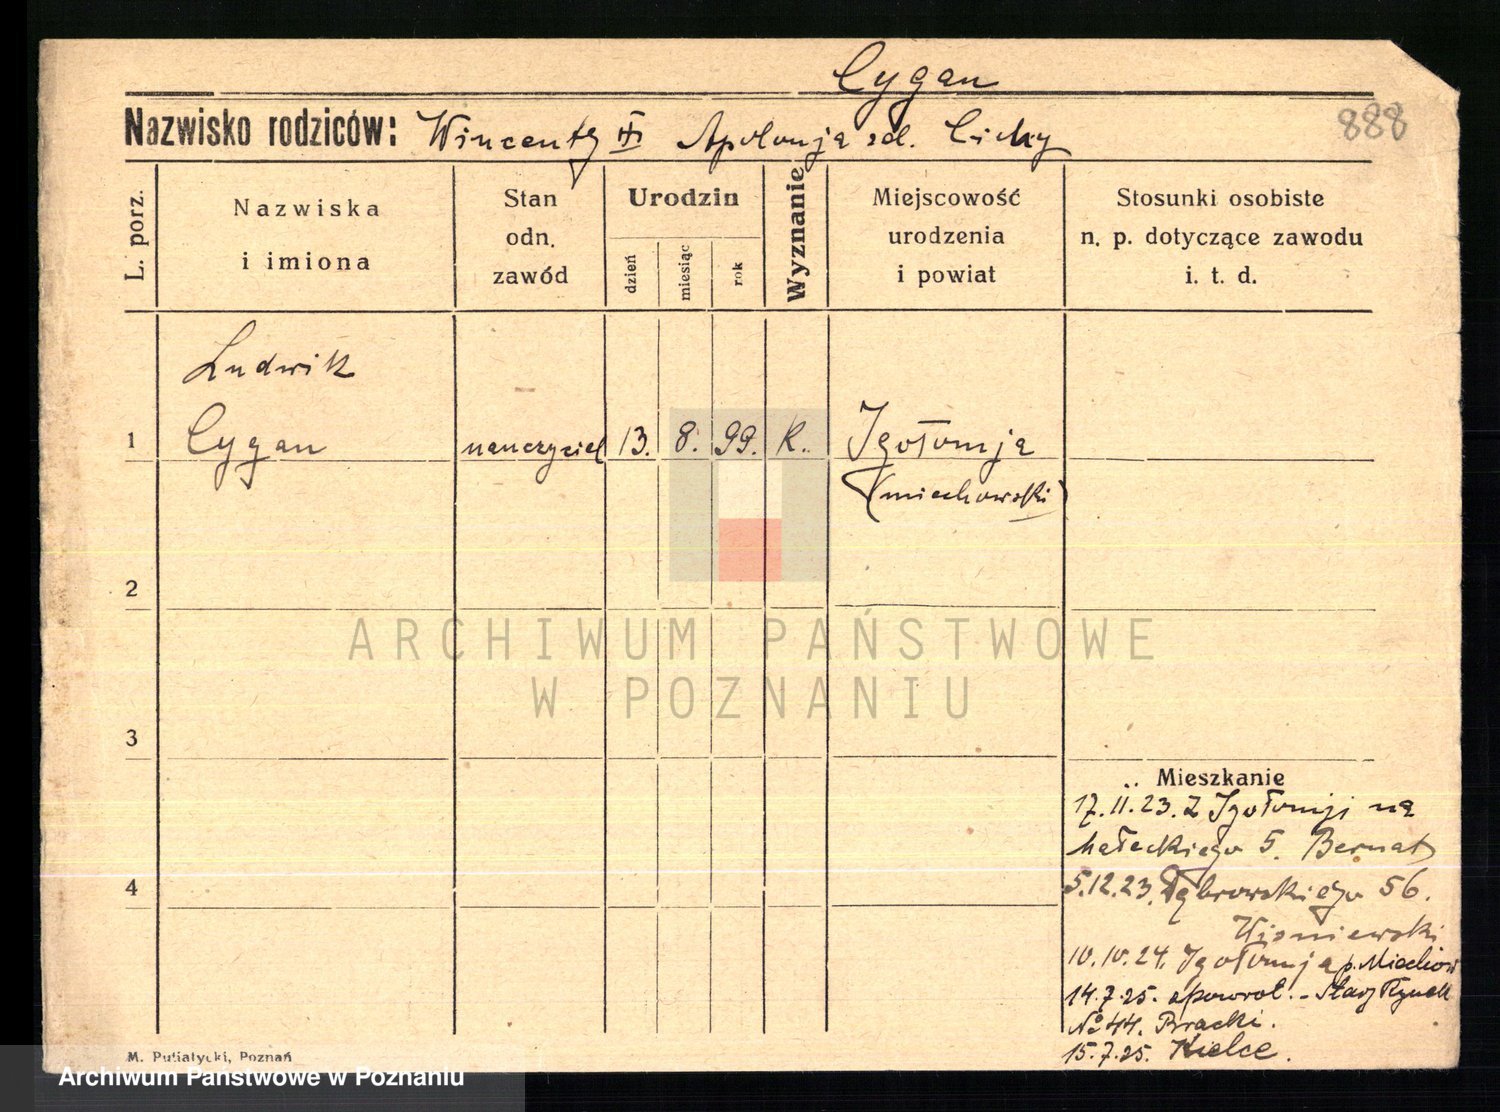 Cygan
888
Nazwisko rodziców: Wincenty Apolonja zd. Cichy
L. porz.
Nazwiska
i imiona
Stan
odn.
zawód
Urodzin
dzień
miesiąc
rok
Wyznanie
Miejscowość
urodzenia
i powiat
Stosunki osobiste
n. p. dotyczące zawodu
i. t. d.
Ludwik
1 Cygan nauczyciel 13. 8. 99. K. Igołomja
(miechowski)
2
ARCHIWUM PAŃSTWOWE
W POZNANIU
3
Mieszkanie
17.11.23. Z Igołomji na
Małeckiego 5. Bernat
4
5.12.23. Dąbrowskiego 56.
Wiśniewski
10.10.24. Igołomja p. Miechów
14.7.25. zpowrot. - Stary Rynek
№ 44. Bracki.
15.7.25. Kielce.
M. Putiatycki, Poznań
Archiwum Państwowe w Poznaniu